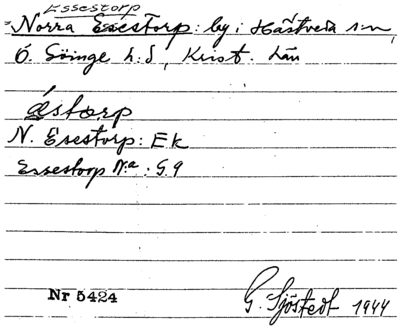 Essestorp
Norra Esestorp: by i Hästveda s:n,
Ö. Göinge h:d, Krist. län
åstorp
N. Esestorp: Ek
Essestorp N:a: G.9
Nr 5424 G. Sjöstedt 1944